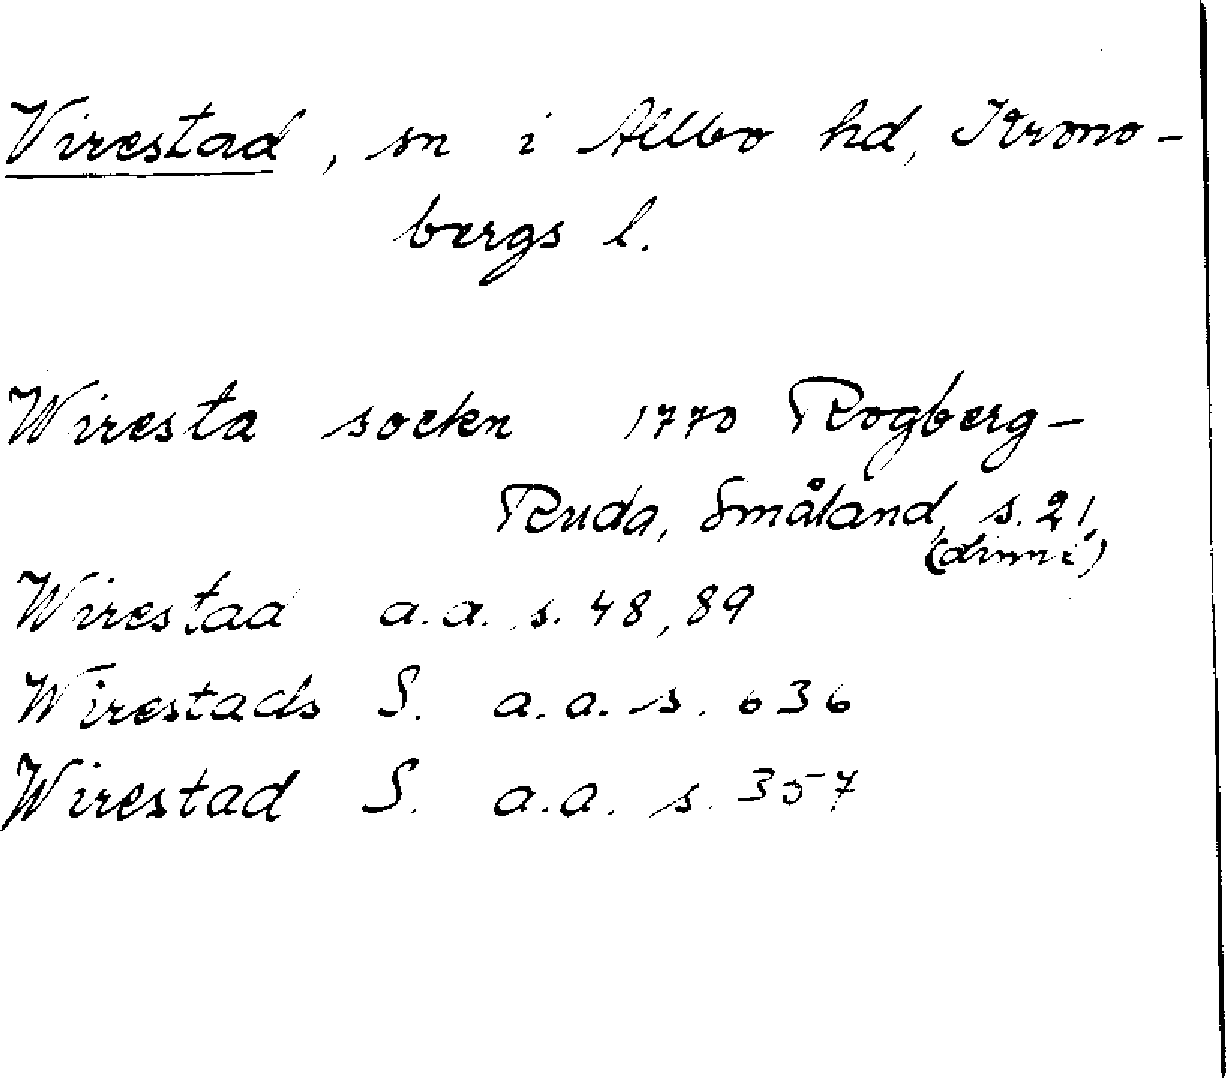 Virestad, sn i Allbo hd, Krono-
bergs l.
Wiresta sockn 1770 Rogberg-
Ruda, Småland, s. 21,
Wirestad a.a. s. 48, 89
Wirestads S. a.a. s. 636
Wirestad S. a.a. s. 357